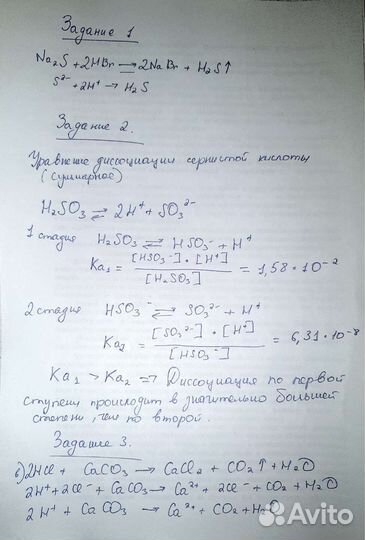 Задание 1
Na₂S + 2HBr ⇄ 2NaBr + H₂S↑
S²⁻ + 2H⁺ → H₂S
Задание 2.
Уравнение диссоциации сернистой кислоты
(суммарное)
H₂SO₃ ⇄ 2H⁺ + SO₃²⁻
1 стадия H₂SO₃ ⇄ HSO₃⁻ + H⁺
Ka₁ = [HSO₃⁻] • [H⁺] / [H₂SO₃] = 1,58 • 10⁻²
2 стадия HSO₃⁻ ⇄ SO₃²⁻ + H⁺
Ka₂ = [SO₃²⁻] • [H⁺] / [HSO₃⁻] = 6,31 • 10⁻⁸
Ka₁ > Ka₂ => Диссоциация по первой
ступени происходит в значительно большей
степени, чем по второй.
Задание 3.
2HCl + CaCO₃ → CaCl₂ + CO₂↑ + H₂O
2H⁺ + 2Cl⁻ + CaCO₃ → Ca²⁺ + 2Cl⁻ + CO₂ + H₂O
2H⁺ + CaCO₃ → Ca²⁺ + CO₂ + H₂O
Avito